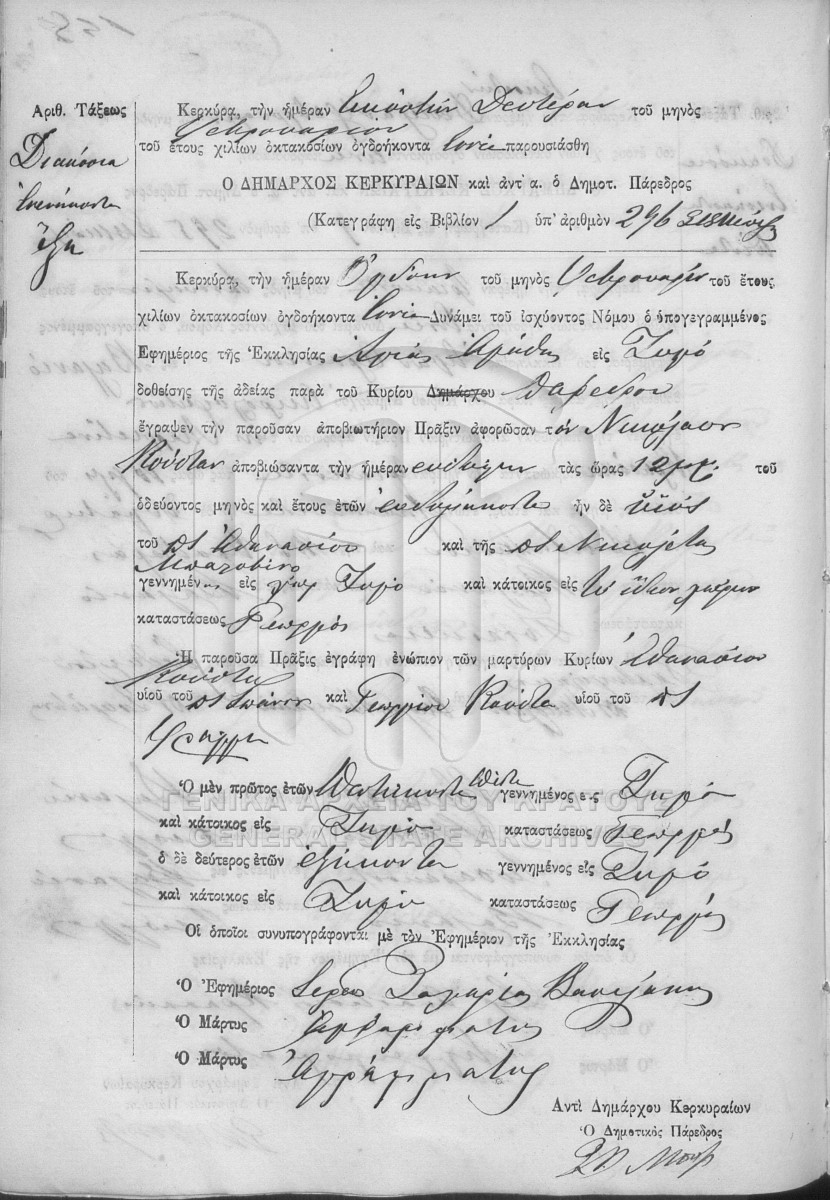 Ἀριθ. Τάξεως
Διακόσια
ἐνενήκοντα
ἕξη
Κερκύρα, τὴν ἡμέραν Εἰκοστὴν Δευτέραν τοῦ μηνὸς
Φεβρουαρίου
τοῦ ἔτους χιλίων ὀκτακοσίων ὀγδοήκοντα ἐννέα παρουσιάσθη
Ο ΔΗΜΑΡΧΟΣ ΚΕΡΚΥΡΑΙΩΝ καὶ ἀντ' α. ὁ Δημοτ. Πάρεδρος
(Κατεγράφη εἰς Βιβλίον 1 ὑπ' ἀριθμὸν 296
Κερκύρα, τὴν ἡμέραν Ὀγδόην τοῦ μηνὸς Φεβρουαρίου τοῦ ἔτους
χιλίων ὀκτακοσίων ὀγδοήκοντα ἐννέα Δυνάμει τοῦ ἰσχύοντος Νόμου ὁ ὑπογεγραμμένος
Ἐφημέριος τῆς Ἐκκλησίας Ἁγίας Ἀγάθης εἰς
δοθείσης τῆς ἀδείας παρὰ τοῦ Κυρίου Δημάρχου Παρέδρου
ἔγραψεν τὴν παροῦσαν ἀποβιωτήριον Πρᾶξιν ἀφορῶσαν τὸν Νικόλαον
Κούσταν ἀποβιώσαντα τὴν ἡμέραν εὐδόμην τὰς ὥρας 12 μ.μ. τοῦ
ὁδεύοντος μηνὸς καὶ ἔτους ἐτῶν ἑυδομήκοντα ἦν δὲ υἱὸς
τοῦ πτ Ἀθανασίου καὶ τῆς πτ Νικολέτας
γεννημέν εἰς χωρ καὶ κάτοικος εἰς τὸ ἴδιον χωρίον
καταστάσεως Γεωργός
Ἡ παροῦσα Πρᾶξις ἐγράφη ἐνώπιον τῶν μαρτύρων Κυρίων Ἀθανασίου
Κούστα
υἱοῦ τοῦ πτ Ἰωάννου καὶ Γεωργίου Κούστα υἱοῦ τοῦ πτ
Ὁ μὲν πρῶτος ἐτῶν Πεντήκοντα Πέντε γεννημένος εἰς
καὶ κάτοικος εἰς καταστάσεως Γεωργός
ὁ δὲ δεύτερος ἐτῶν ἑξήκοντα γεννημένος εἰς
καὶ κάτοικος εἰς καταστάσεως Γεωργός
Οἱ ὁποῖοι συνυπογράφονται μὲ τὸν Ἐφημέριον τῆς Ἐκκλησίας
Ὁ Ἐφημέριος Ἱερεὺς Ζαχαρίας
Ὁ Μάρτυς Ἀγράμματος
Ὁ Μάρτυς Ἀγράμματος
Ἀντὶ Δημάρχου Κερκυραίων
Ὁ Δημοτικὸς Πάρεδρος
ΓΕΝΙΚΑ ΑΡΧΕΙΑ ΤΟΥ ΚΡΑΤΟΥΣ
GENERAL STATE ARCHIVES